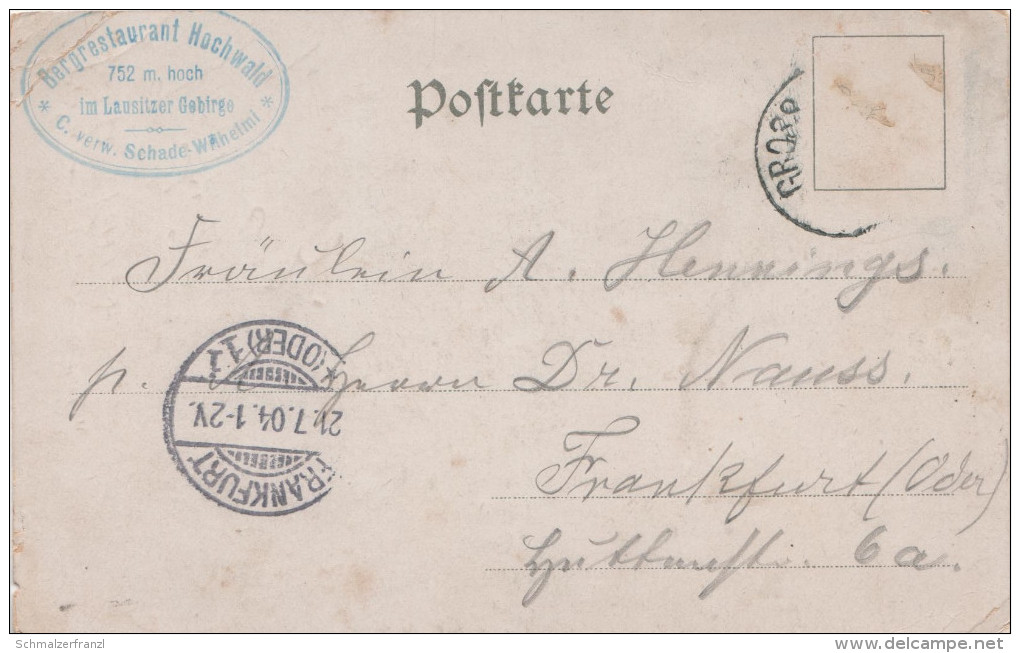 Bergrestaurant Hochwald
752 m. hoch
im Lausitzer Gebirge
* C. verw. Schade-Wilhelmi *
Postkarte
GROSS
Fräulein A. Hennings.
p. Herrn Dr. Nauss.
FRANKFURT
21.7.04.1-2V.
*(ODER)1.
Frankfurt (Oder)
6a.
Schmalzerfranzl
delcampe.net